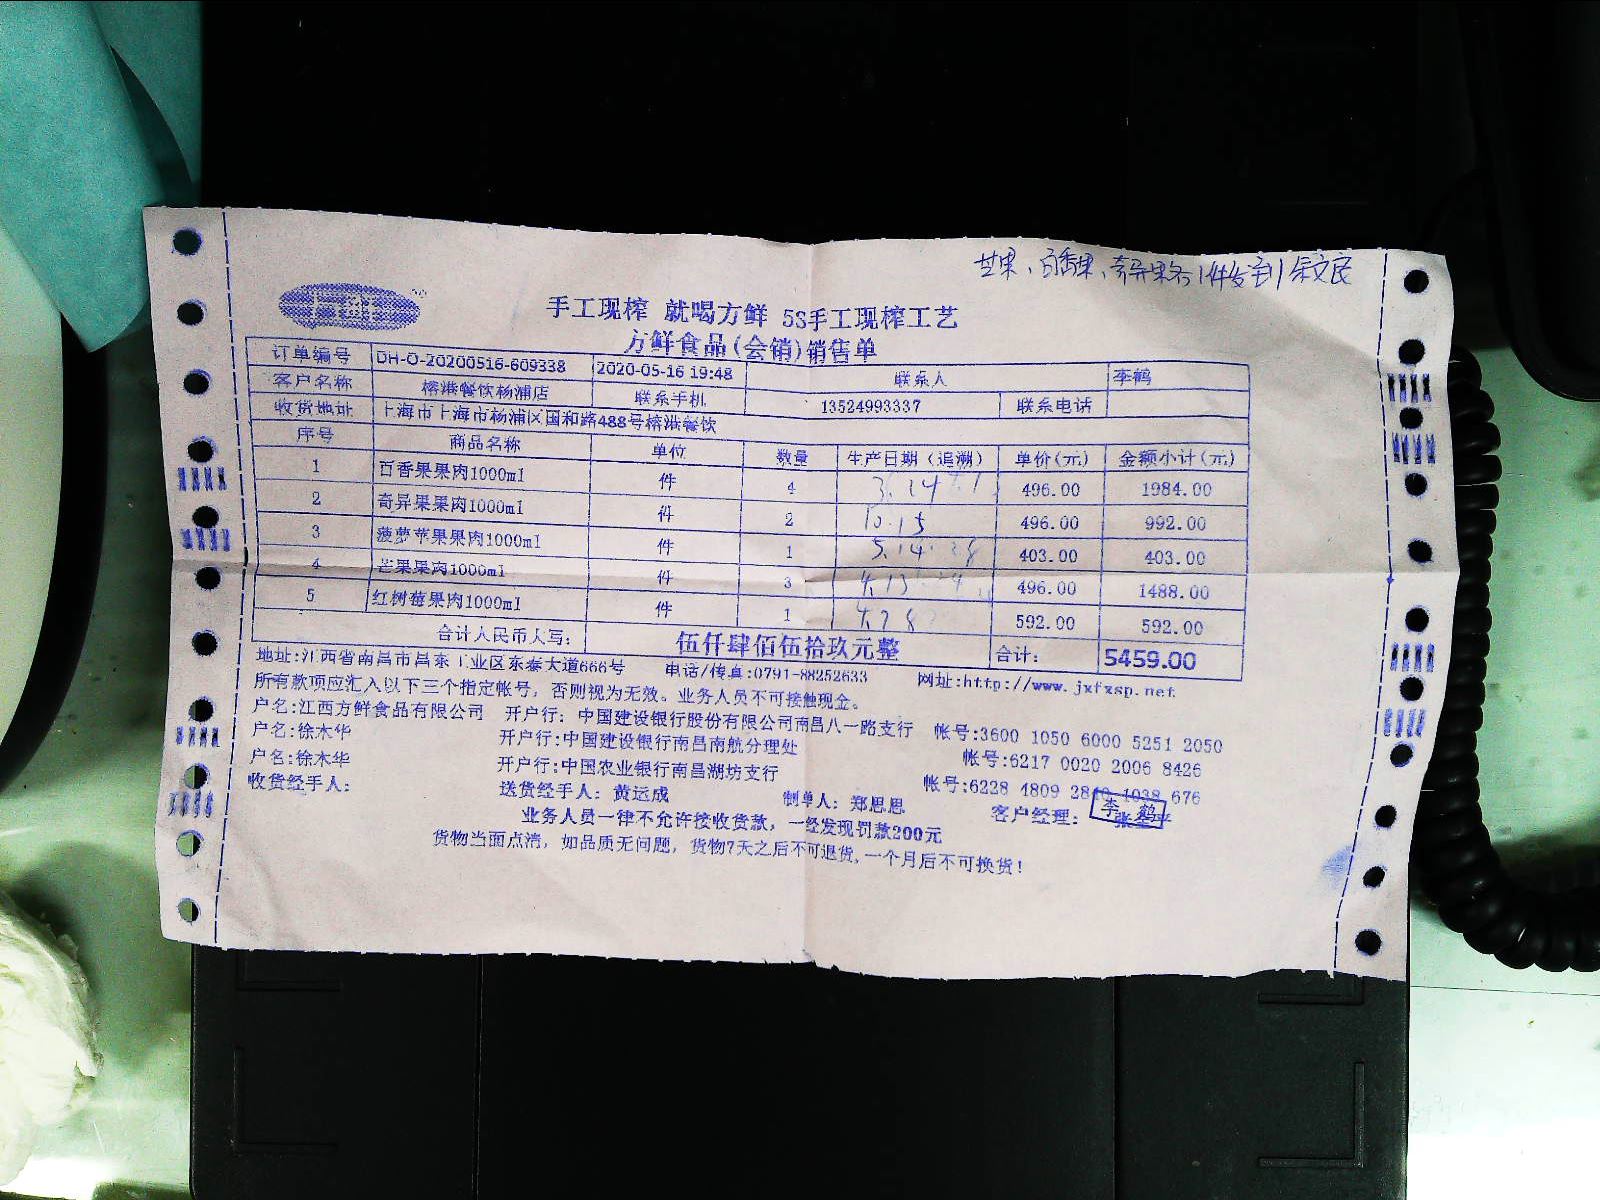 芒果、百香果、奇异果各1件
手工现榨 就喝方鲜 5S手工现榨工艺
方鲜食品(会销)销售单
订单编号 DH-O-20200516-609338 2020-05-16 19:48 联系人 李鹤
客户名称 榕港餐饮杨浦店 联系手机 13524993337 联系电话
收货地址 上海市上海市杨浦区国和路488号榕港餐饮
序号 商品名称 单位 数量 生产日期(追溯) 单价(元) 金额小计(元)
1 百香果果肉1000ml 件 4 3.14 496.00 1984.00
2 奇异果果肉1000ml 件 2 10.15 496.00 992.00
3 菠萝苹果果肉1000ml 件 1 5.14 403.00 403.00
4 芒果果肉1000ml 件 3 4.13 496.00 1488.00
5 红树莓果肉1000ml 件 1 592.00 592.00
合计人民币大写: 伍仟肆佰伍拾玖元整 合计: 5459.00
地址:江西省南昌市昌东工业区东泰大道666号 电话/传真:0791-88252633 网址:http://www.jxfxsp.net
所有款项应汇入以下三个指定帐号,否则视为无效。业务人员不可接触现金。
户名:江西方鲜食品有限公司 开户行: 中国建设银行股份有限公司南昌八一路支行 帐号:3600 1050 6000 5251 2050
户名:徐木华 开户行:中国建设银行南昌南航分理处 帐号:6217 0020 2006 8426
户名:徐木华 开户行:中国农业银行南昌湖坊支行 帐号:6228 4809 2840 1038 676
收货经手人: 送货经手人: 黄运成 制单人: 郑思思 客户经理: 李鹤
业务人员一律不允许接收货款,一经发现罚款200元
货物当面点清,如品质无问题,货物7天之后不可退货,一个月后不可换货!